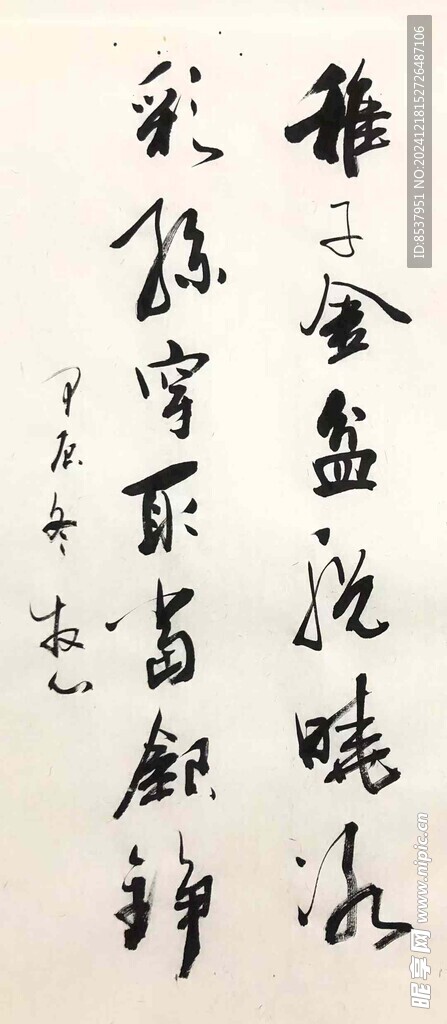 稚子金盆脱曉冰
彩絲穿取當銀錚
甲辰冬 牧心
ID:8537951 NO:20241218152726487106
昵享网 www.nipic.cn